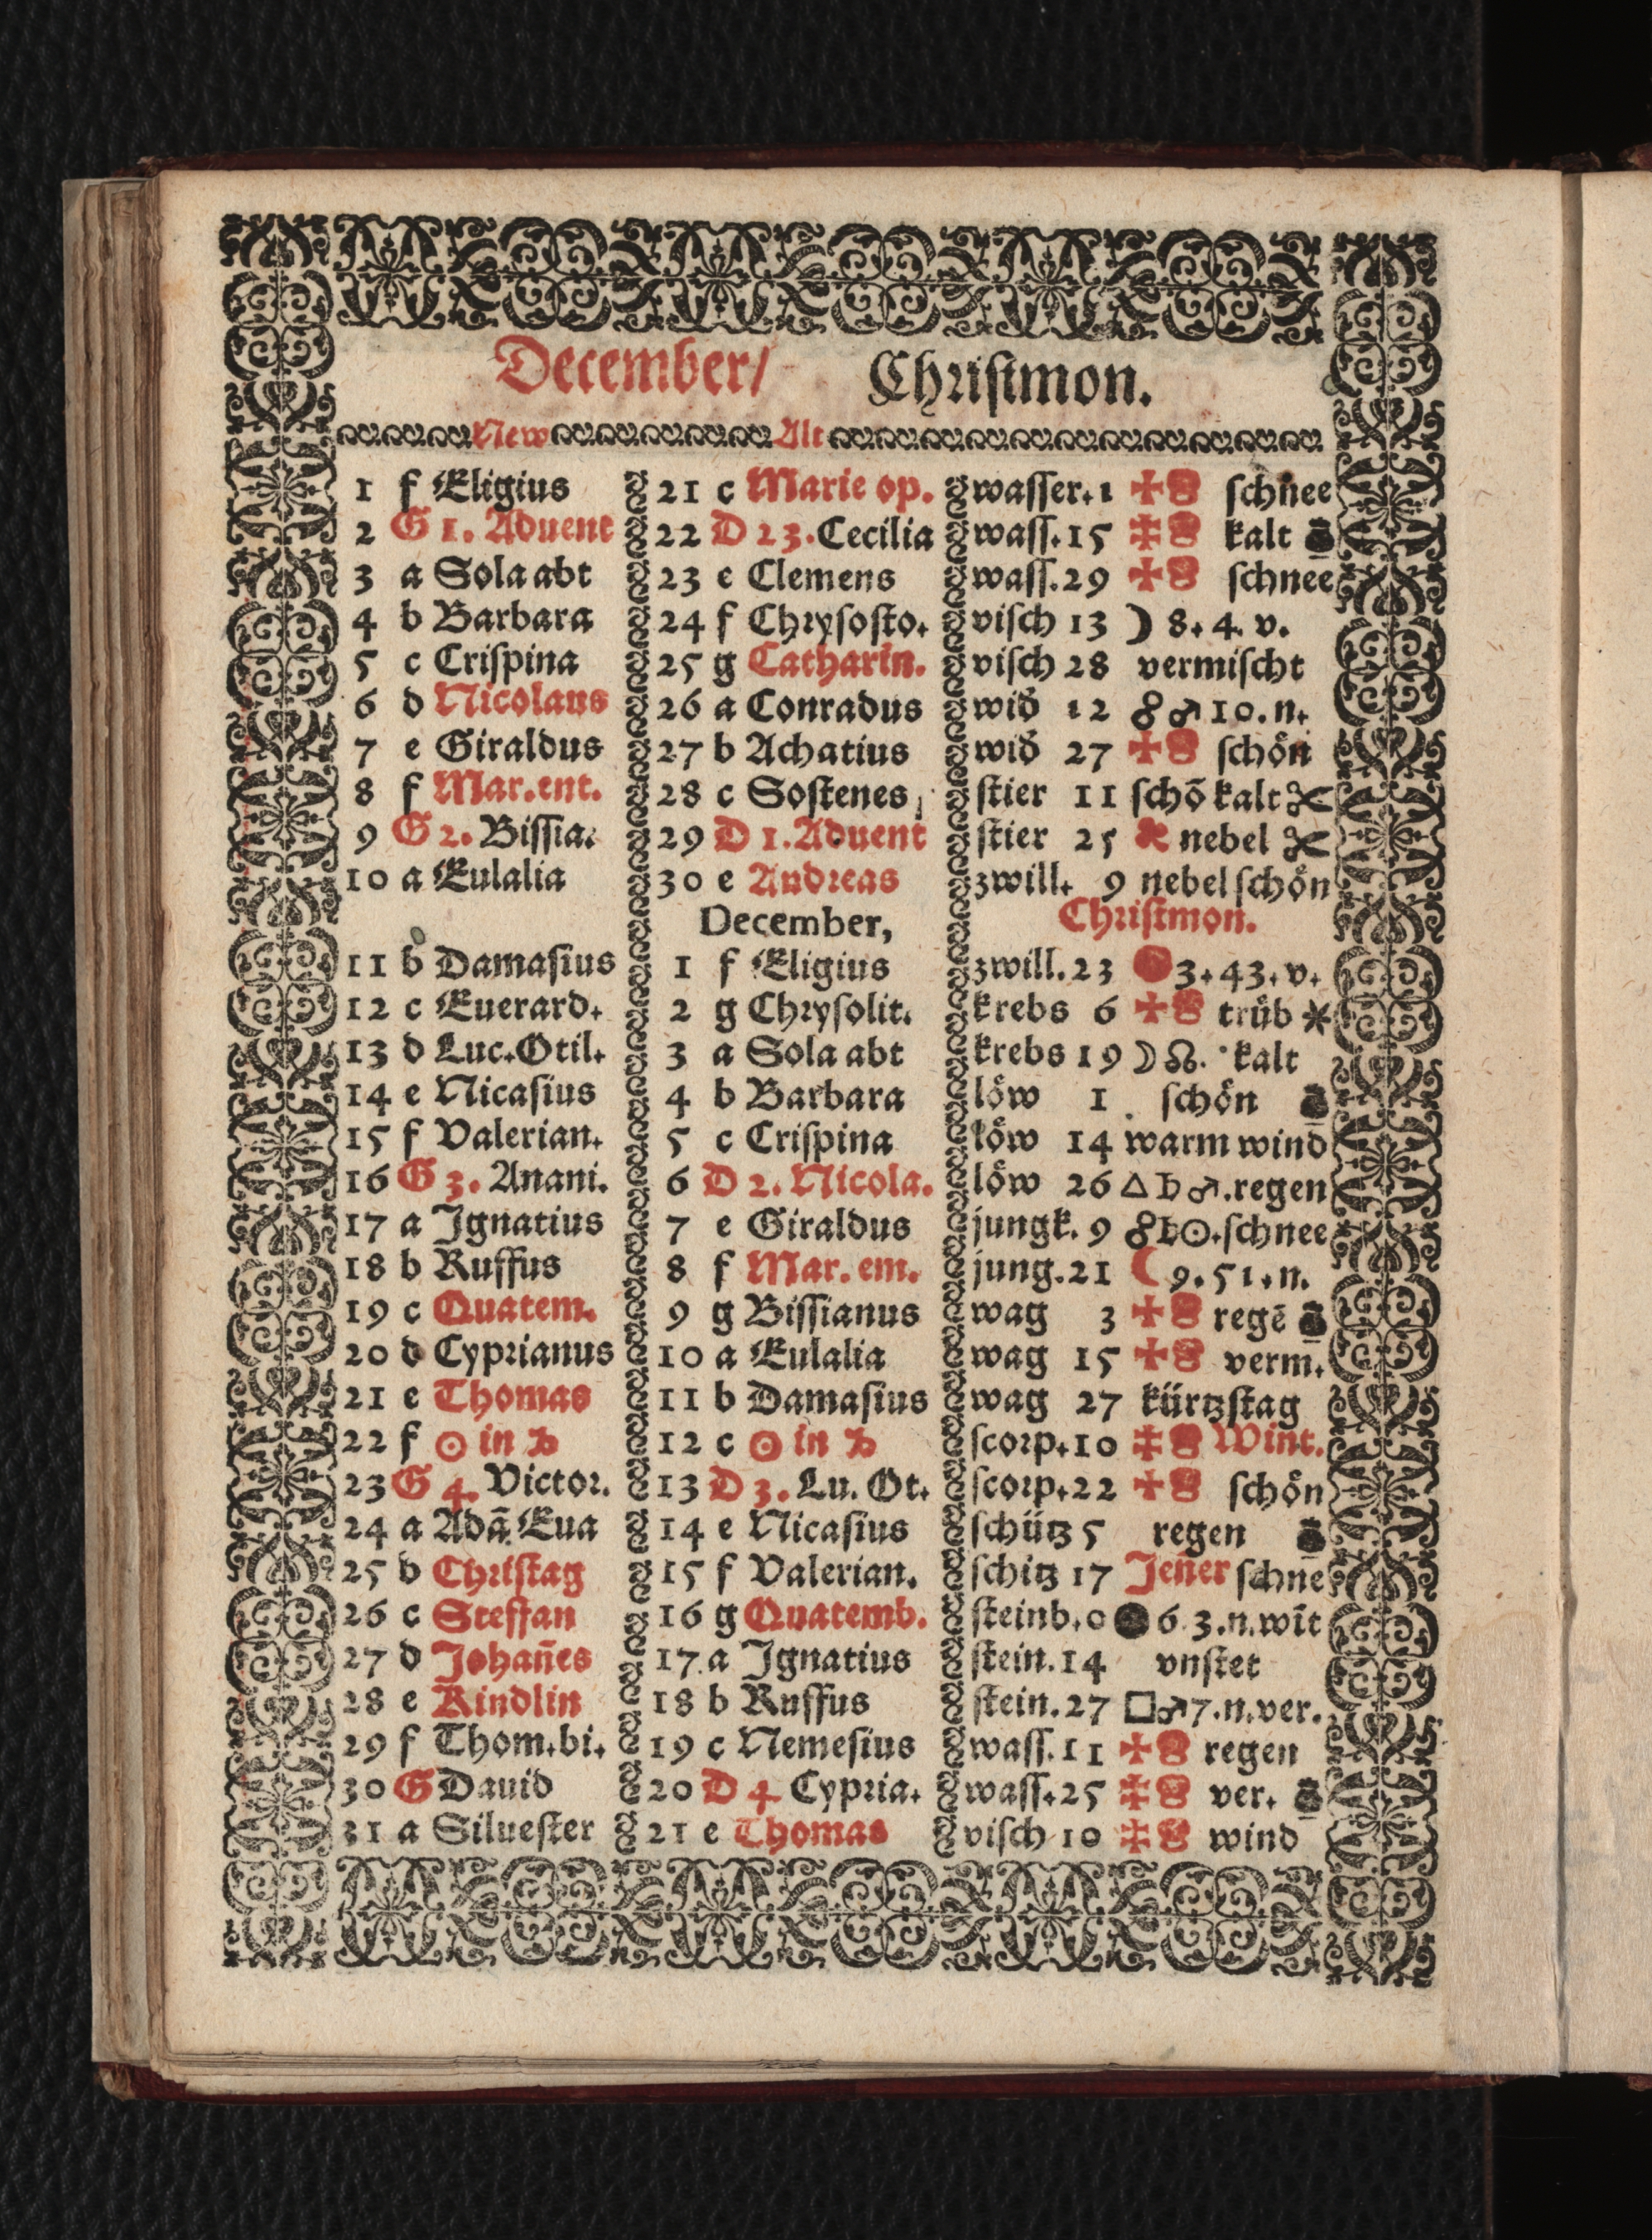 December/ Chriſtmon.
New Alt
1 f Eligius 21 c Marie op. waſſer. 1 ſchnee
2 G 1. Aduent 22 D 23. Cecilia waſſ. 15 kalt
3 a Sola abt 23 e Clemens waſſ. 29 ſchnee
4 b Barbara 24 f Chryſoſto. viſch 13 ☽ 8. 4. v.
5 c Criſpina 25 g Catharin. viſch 28 vermiſcht
6 d Nicolaus 26 a Conradus wid 12 ☍ ♂ 10. n.
7 e Giraldus 27 b Achatius wid 27 ſchön
8 f Mar. ent. 28 c Soſtenes ſtier 11 ſchō kalt
9 G 2. Biſſia. 29 D 1. Aduent ſtier 25 nebel
10 a Eulalia 30 e Andreas zwill. 9 nebel ſchön
December, Chriſtmon.
11 b Damaſius 1 f Eligius zwill. 23 3. 43. v.
12 c Euerard. 2 g Chryſolit. krebs 6 trüb
13 d Luc. Otil. 3 a Sola abt krebs 19 ☽ ☊. kalt
14 e Nicaſius 4 b Barbara löw 1 ſchön
15 f Valerian. 5 c Criſpina löw 14 warm wind
16 G 3. Anani. 6 D 2. Nicola. löw 26 △ ♄ ♂. regen
17 a Ignatius 7 e Giraldus jungk. 9 ☍ ♄ ☉. ſchnee
18 b Ruffus 8 f Mar. em. jung. 21 ☾ 9. 51. n.
19 c Quatem. 9 g Biſſianus wag 3 regē
20 d Cyprianus 10 a Eulalia wag 15 verm.
21 e Thomas 11 b Damaſius wag 27 kürtzſtag
22 f ☉ in ♑ 12 c ☉ in ♑ ſcorp. 10 Wint.
23 G 4. Victor. 13 D 3. Lu. Ot. ſcorp. 22 ſchön
24 a Adā. Eua 14 e Nicaſius ſchütz 5 regen
25 b Chriſtag 15 f Valerian. ſchitz 17 Jen̄er ſchne
26 c Steffan 16 g Quatemb. ſteinb. 0 ● 6 3. n. wīt
27 d Johan̄es 17 a Ignatius ſtein. 14 vnſtet
28 e Kindlin 18 b Ruffus ſtein. 27 □ ♂ 7. n. ver.
29 f Thom. bi. 19 c Nemeſius waſſ. 11 regen
30 G Dauid 20 D 4 Cypria. waſſ. 25 ver.
31 a Silueſter 21 e Thomas viſch 10 wind